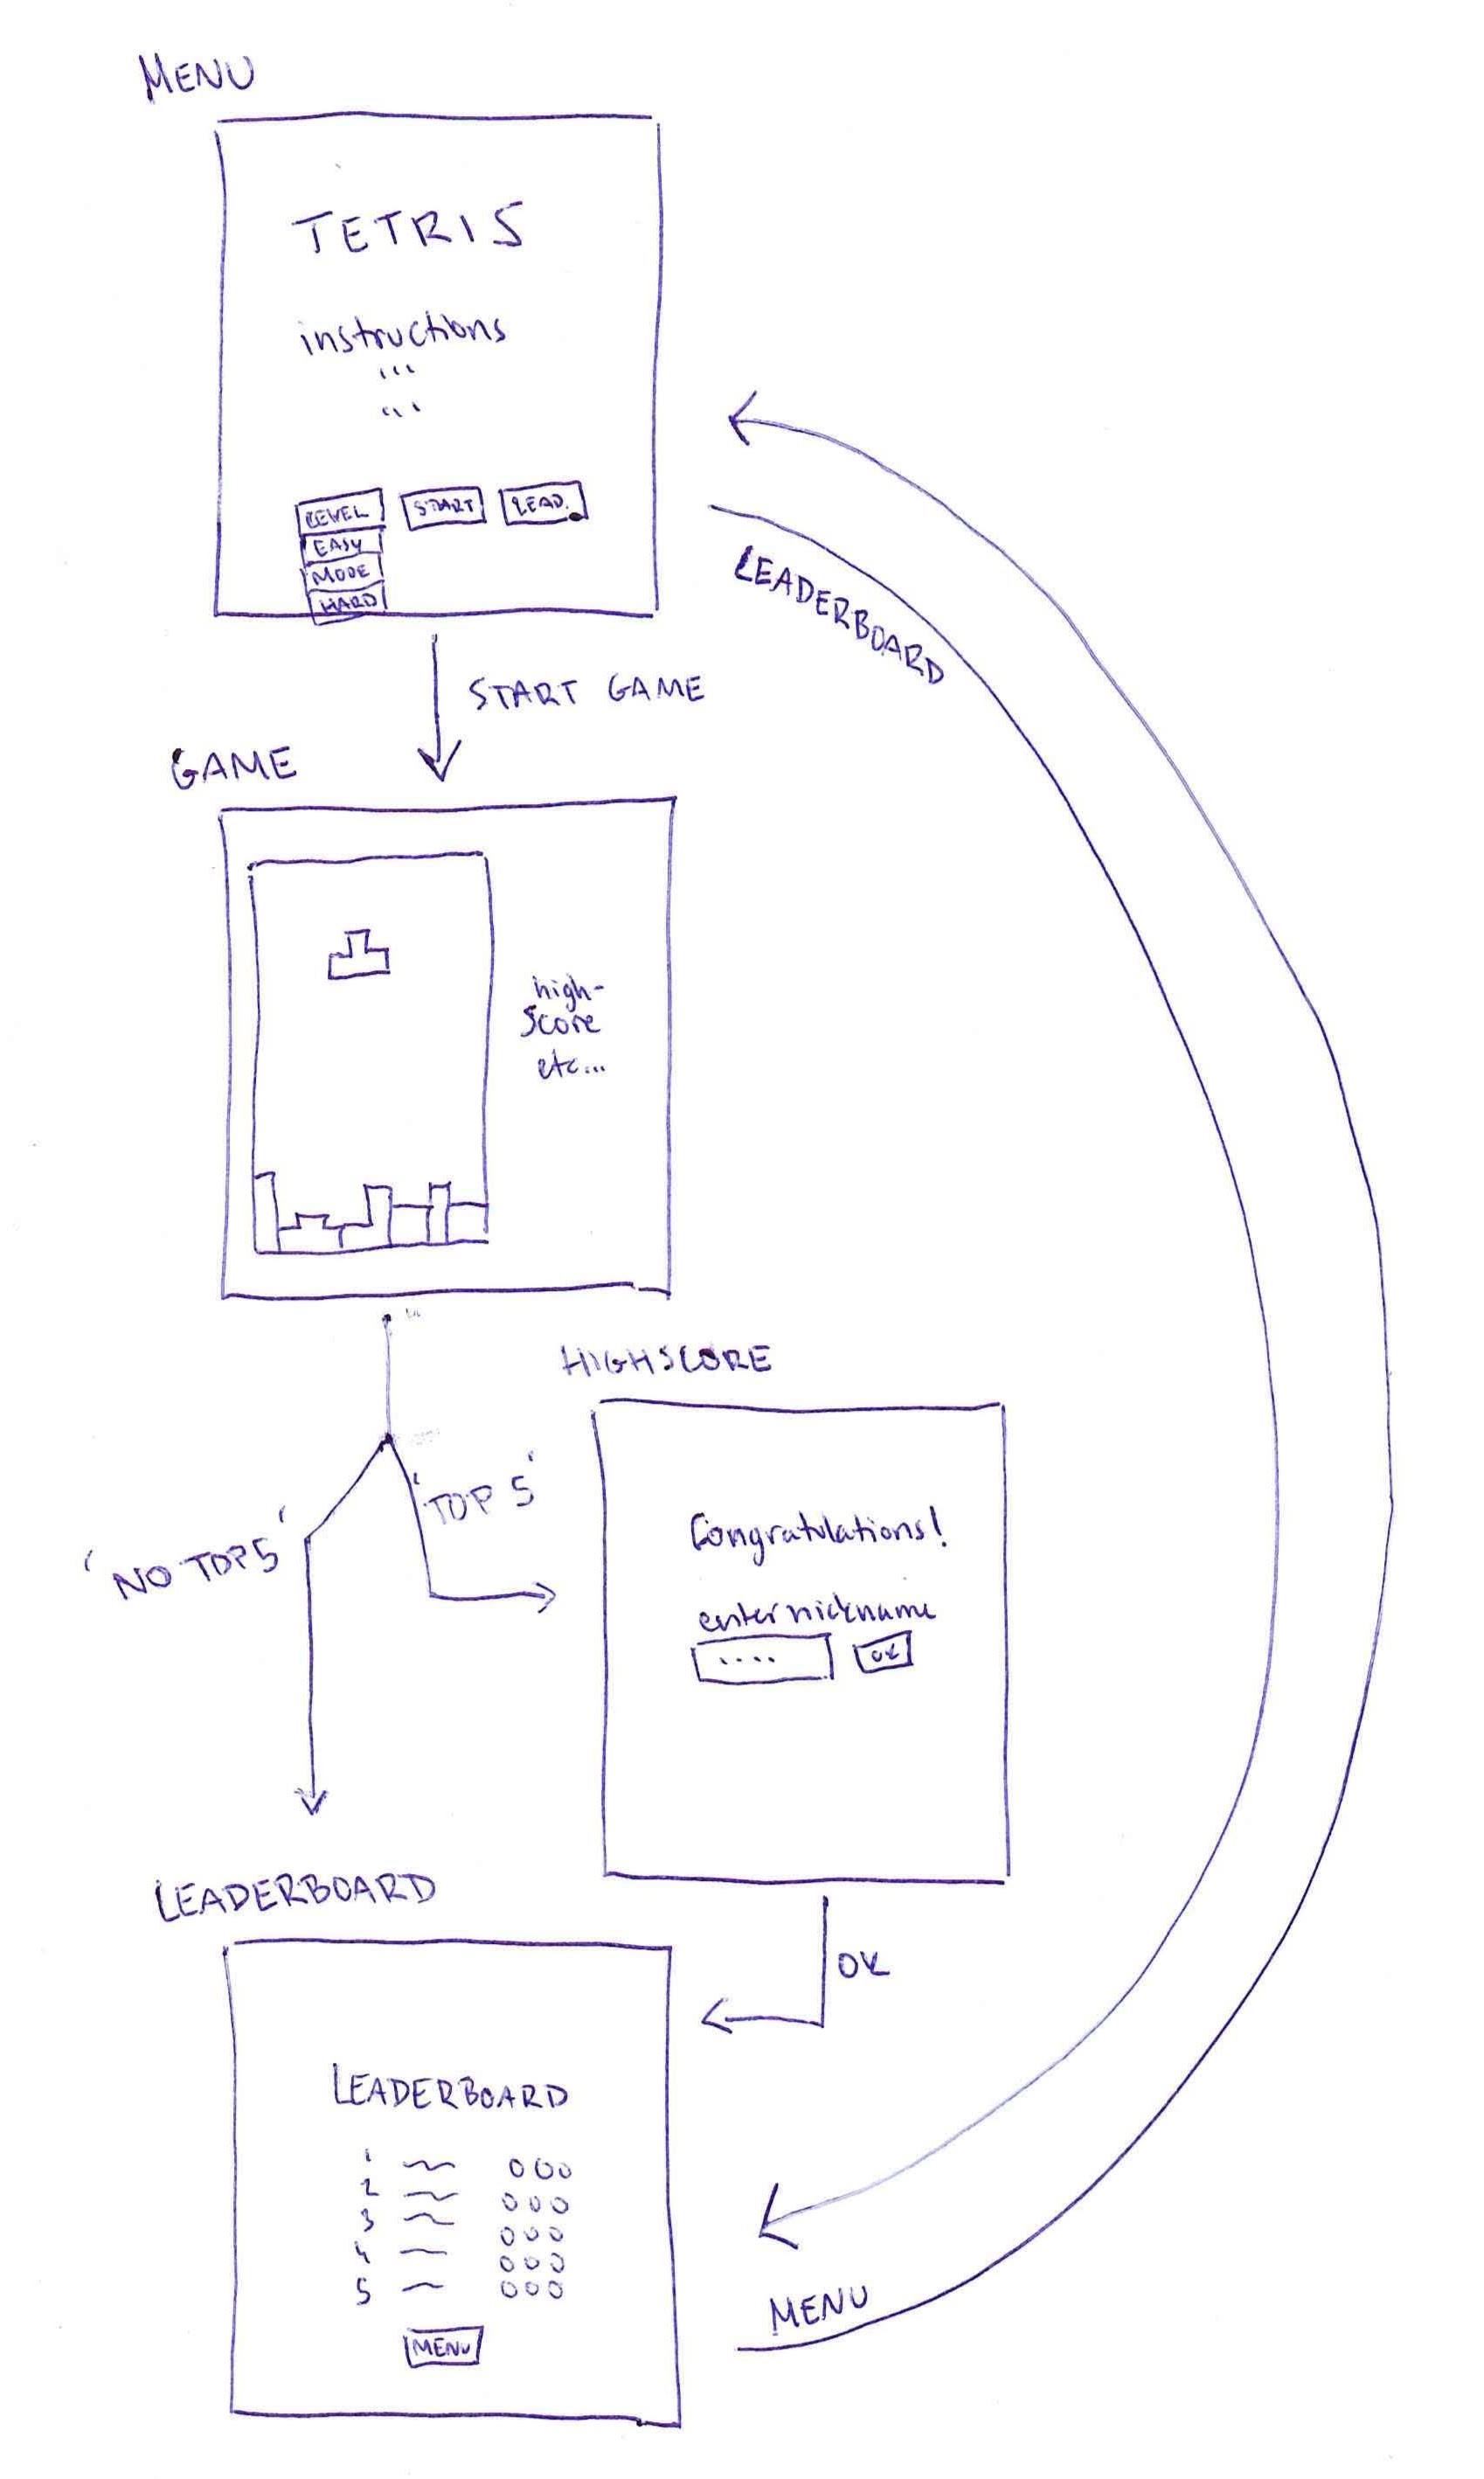 MENU
TETRIS
instructions
LEVEL START LEAD.
EASY
MODE
HARD
LEADERBOARD
START GAME
GAME
high-
score
etc...
HIGHSCORE
'TOP 5'
'NO TOP5'
Congratulations!
enter nickname
.... OK
LEADERBOARD
OK
LEADERBOARD
1 000
2 000
3 000
4 000
5 000
MENU
MENU